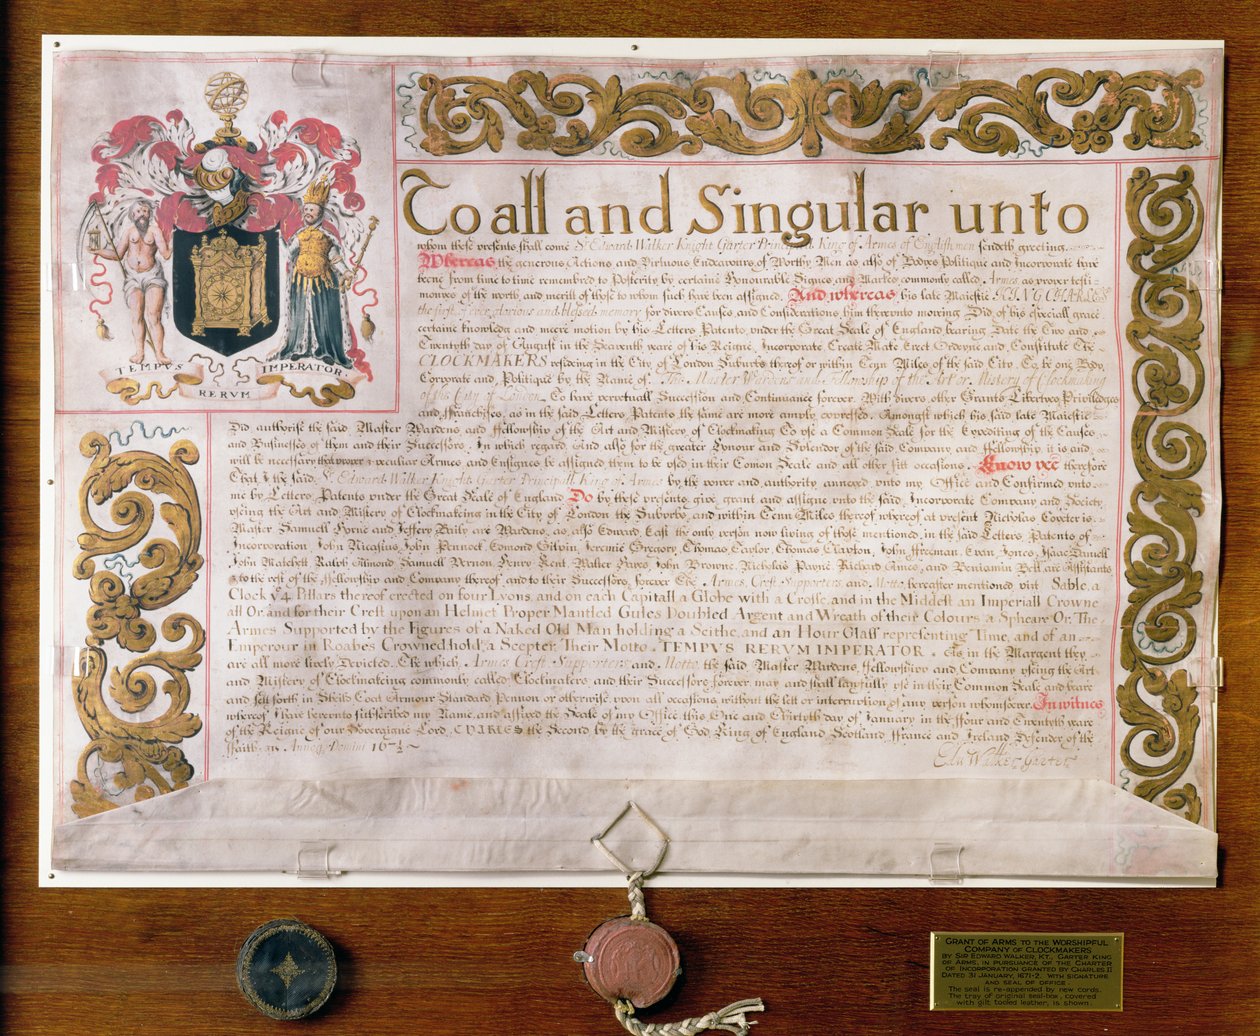 TEMPVS
RERVM
IMPERATOR.
To all and Singular unto
whom these presents shall come Sr. Edward Walker Knight Garter Principall King of Armes of English men sendeth greeting.
Whereas the generous Actions and Virtuous Endeavours of Worthy Men as also of Bodyes Politique and Incorporate have
beene from time to time remembred to Posterity by certaine Honourable Signes and Markes commonly called Armes as proper testi-
monyes of the worth and meritt of those to whom such have been assigned. And whereas his late Majestie KING CHARLES
the first of ever glorious and blessed memory for divers Causes and Considerations him thereunto moving Did of his especiall grace
certaine knowledg and meere motion by his Letters Patents under the Great Seale of England bearing Date the Two and
Twentyth day of August in the Seaventh yeare of his Reigne, Incorporate Create Make Erect Ordeyne and Constitute The
CLOCKMAKERS residing in the City of London Suburbs thereof or within Tenn Miles of the said City, To be one Body
Corporate and Politique by the Name of The Master Wardens and Fellowship of the Art or Mistery of Clockmaking
of the City of London To have perpetuall Succession and Continuance forever. With divers other Grants Libertyes Priviledges
and ffranchises, as in the said Letters Patents the same are more amply expressed. Amongst which his said late Majestie
Did authorise the said Master Wardens and ffellowship of the Art and Mistery of Clockmaking To use a Common Seale for the Expediting of the Causes
and Businesses of them and their Successors. In which regard And also for the greater Honour and Splendor of the said Company and ffellowship it is and
will be necessary that proper & peculiar Armes and Ensignes be assigned them to be used in their Comon Seale and all other fitt occasions. Know yee therefore
That I the said Sr. Edward Walker Knight Garter Principall King of Armes by the power and authority annexed unto my Office and Confirmed unto
me by Letters Patents under the Great Seale of England Do by these presents give grant and assigne unto the said Incorporate Company and Society
useing the Art and Mistery of Clockmaking in the City of London the Suburbs and within Tenn Miles thereof whereof at present Nicholas Coxeter is
Master Samuell Horne and Jeffery Baily are Wardens, as also Edward East the only person now living of those mentioned in the said Letters Patents of
Incorporation, John Nicasius, John Pennock, Edmond Gilpin, Jeremie Gregory, Thomas Taylor, Thomas Claxton, John ffreeman, Evan Jones, Isaac Daniell
John Matchett Ralph Almond Samuell Vernon Henry Kent Walter Hayes John Browne Nicholas Payne Richard Ames, and Benjamin Bell are Assistants
& to the rest of the ffellowship and Company thereof, and to their Successors forever The Armes, Crest, Supporters and Motto hereafter mentioned vizt Sable, a
Clock ye 4 Pillars thereof erected on four Lyons and on each Capitall a Globe with a Crosse, and in the Middest an Imperiall Crowne
all Or. And for their Crest upon an Helmet Proper Mantled Gules Doubled Argent and Wreath of their Colours a Spheare Or. The
Armes Supported by the Figures of a Naked Old Man holding a Scithe, and an Hour Glass representing Time, and of an
Emperour in Roabes Crowned hold.g a Scepter, Their Motto. TEMPVS RERVM IMPERATOR. As in the Margent they
are all more lively Depicted. The which, Armes Crest Supporters and Motto the said Master Wardens, ffellowship and Company useing the Art
and Mistery of Clockmaking commonly called Clockmakers and their Successors forever may and shall lawfully use in their Common Seale, and beare
and sett forth in Sheild Coat Armour Standard Penon or otherwise, upon all occasions without the lett or interruption of any person whomsoever. In witnes
whereof I have hereunto subscribed my Name, and affixed the Seale of my Office this One and Thirtyth day of January in the ffour and Twentyth yeare
of the Reigne of our Soveraigne Lord, CHARLES the Second by the grace of God King of England Scotland ffrance and Ireland Defender of the
ffaith &c. Annoq Domini 167½
Edw Walker Garter
GRANT OF ARMS TO THE WORSHIPFUL
COMPANY OF CLOCKMAKERS
BY SIR EDWARD WALKER, KT., GARTER KING
OF ARMS, IN PURSUANCE OF THE CHARTER
OF INCORPORATION GRANTED BY CHARLES II
DATED 31 JANUARY, 1671-2. WITH SIGNATURE
AND SEAL OF OFFICE
The seal is re-appended by new cords.
The tray of original seal-box, covered
with gilt tooled leather, is shown.